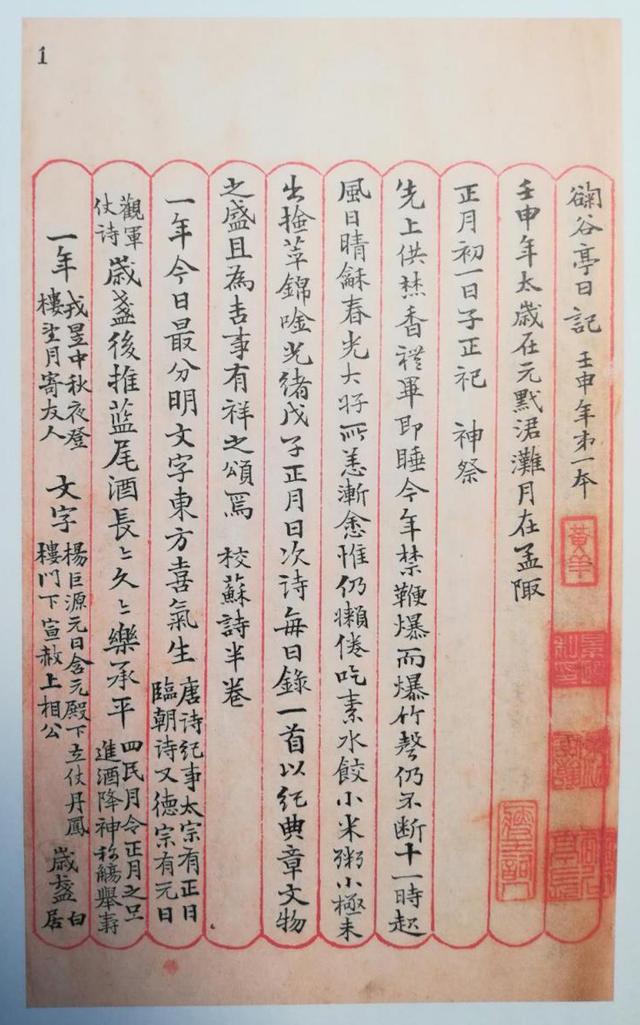 1
谷亭日記 壬申年第一本 黃羊
壬申年太歲在元黓涒灘月在孟陬
正月初一日子正祀 神祭
先上供焚香禮畢即睡今年禁鞭爆而爆竹聲仍不斷十一時起
風日晴龢春光大好所恙漸愈惟仍懶倦吃素水餃小米粥小極未
出撿萃錦唫光緒戊子正月日次詩每日錄一首以紀典章文物
之盛且為吉事有祥之頌焉 校蘇詩半卷
一年今日最分明文字東方喜氣生 唐詩紀事太宗有正日臨朝詩又德宗有元日
觀軍仗詩 歲盞後推藍尾酒長〻久〻樂承平 四民月令正月之旦進酒降神称觴舉壽
一年 戎昱中秋夜澄樓望月寄友人 文字 楊巨源元日含元殿下立仗丹鳳樓門下宣赦上相公 歲盞 白居